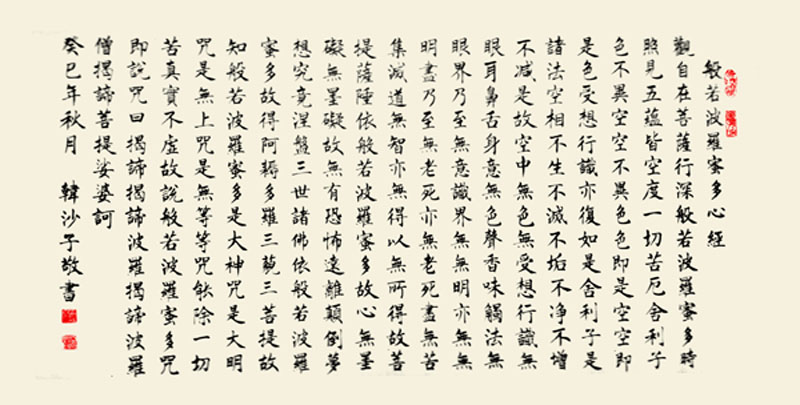 般若波羅蜜多心經
觀自在菩薩行深般若波羅蜜多時
照見五蘊皆空度一切苦厄舍利子
色不異空空不異色色即是空空即
是色受想行識亦復如是舍利子是
諸法空相不生不滅不垢不净不增
不减是故空中無色無受想行識無
眼耳鼻舌身意無色聲香味觸法無
眼界乃至無意識界無無明亦無無
明盡乃至無老死亦無老死盡無苦
集滅道無智亦無得以無所得故菩
提薩陲依般若波羅蜜多故心無墨
礙無墨礙故無有恐怖遠離顛倒夢
想究竟涅盤三世諸佛依般若波羅
蜜多故得阿耨多羅三藐三菩提故
知般若波羅蜜多是大神咒是大明
咒是無上咒是無等等咒能除一切
苦真實不虛故說般若波羅蜜多咒
即說咒曰揭諦揭諦波羅揭諦波羅
僧揭諦菩提娑婆訶
癸巳年秋月 韓沙子敬書